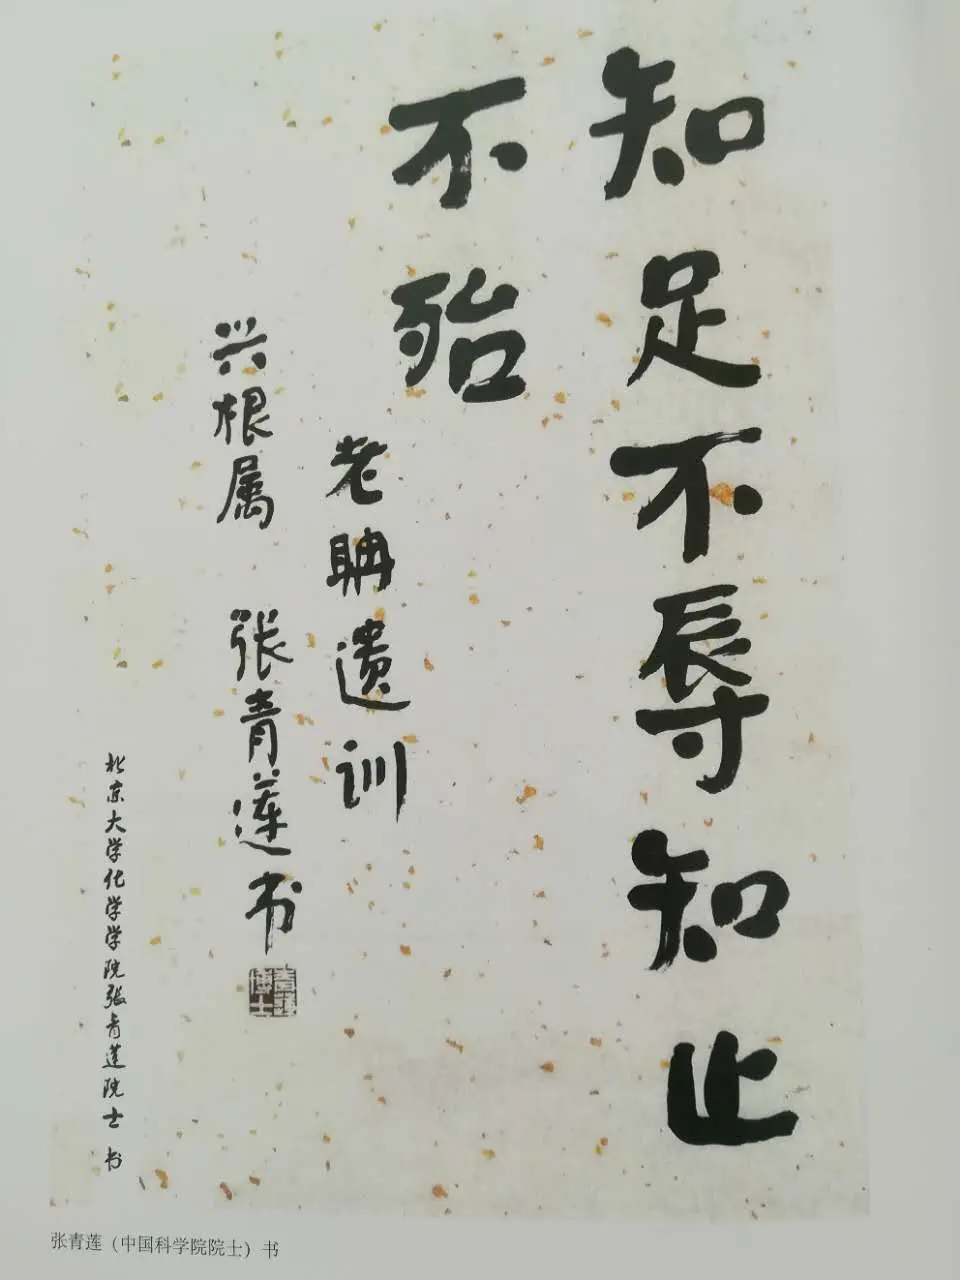 知足不辱知止
不殆
老聃遗训
兴根属 张青莲书
青莲博士
北京大学化学学院张青莲院士 书
张青莲（中国科学院院士）书